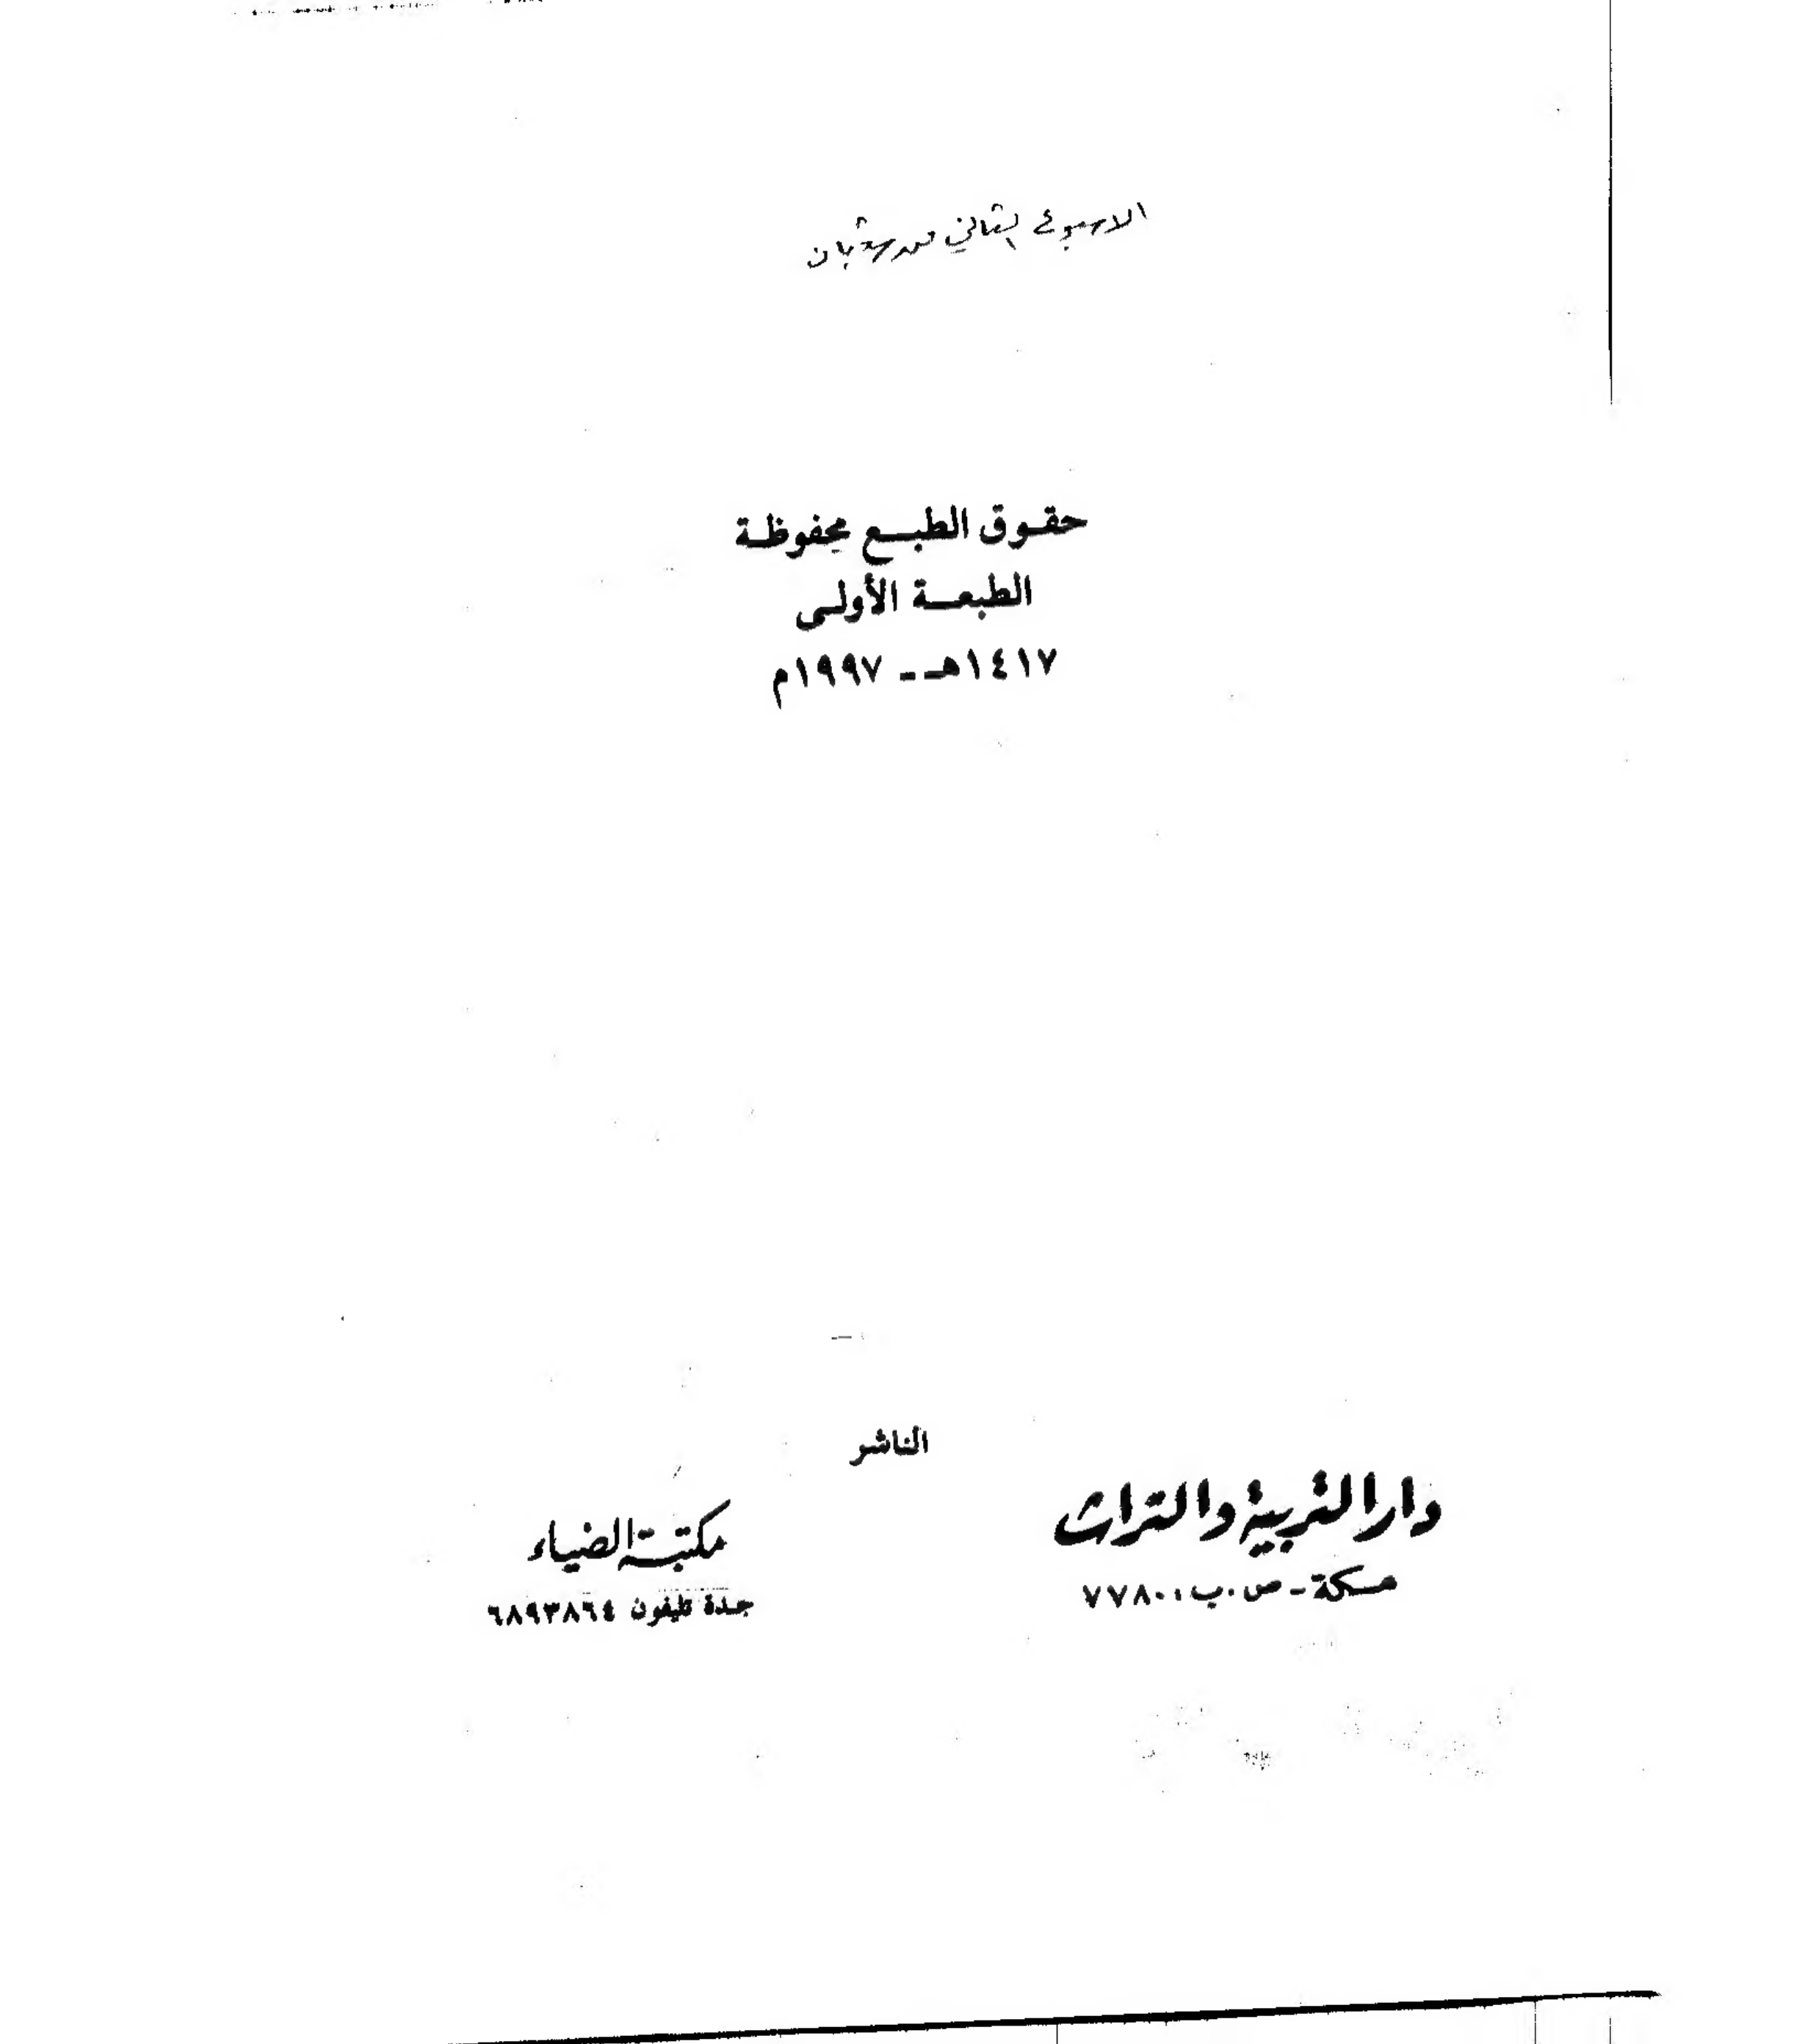 الاسبوع الثاني من شعبان
حقوق الطبع محفوظة
الطبعة الأولى
١٤١٧هـ - ١٩٩٧م
الناشر
دار التربية والتراث
مكة - ص.ب ٧٧٨٠١
مكتبة الضياء
جدة تليفون ٦٨٩٣٨٦٤